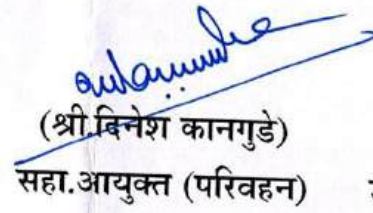 (श्री.दिनेश कानगुडे)
सहा.आयुक्त (परिवहन)